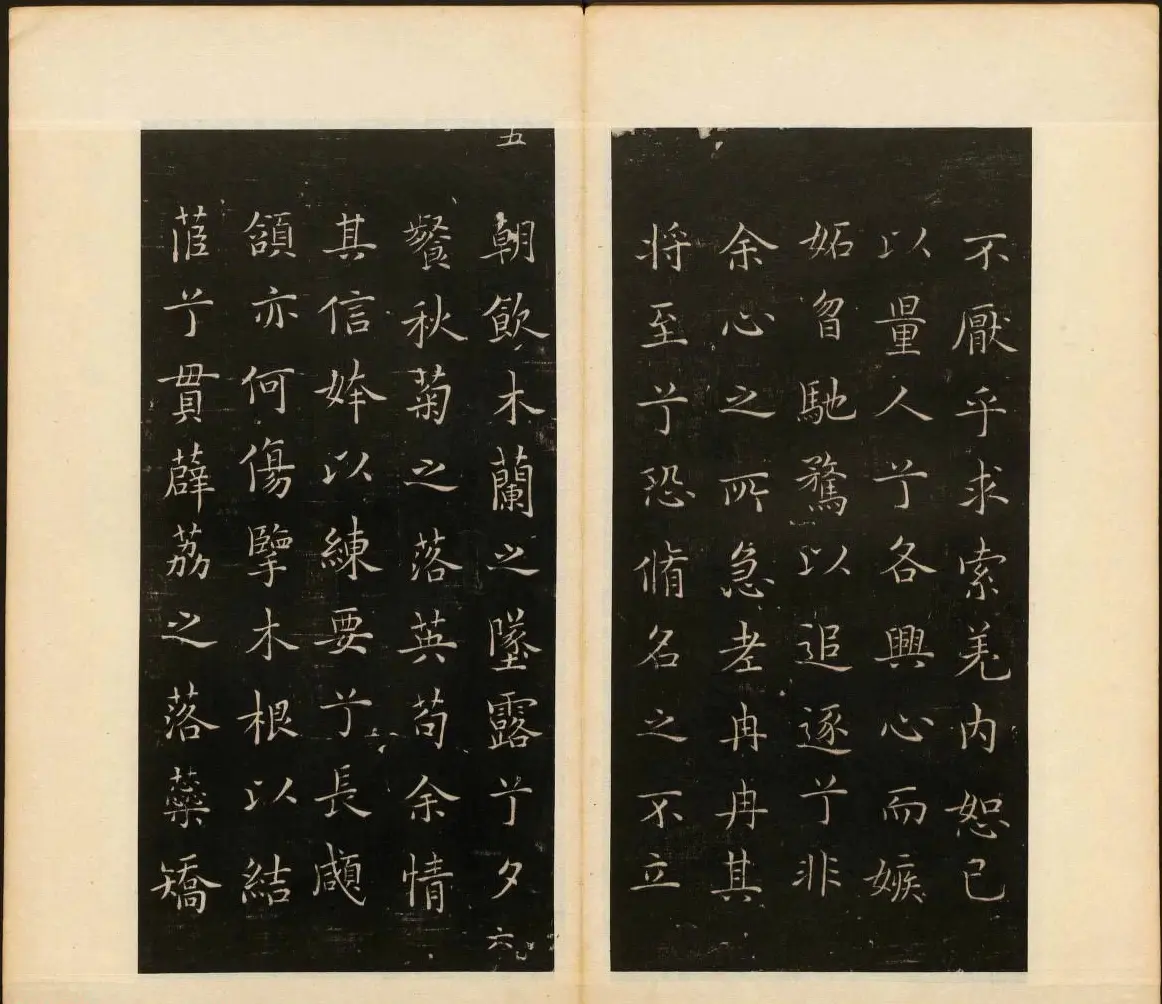 不厭乎求索羌内恕己
以量人兮各興心而嫉
妬曶馳騖以追逐兮非
余心之所急老冉冉其
将至兮恐脩名之不立
五
朝飲木蘭之墜露兮夕
餐秋菊之落英苟余情
其信姱以練要兮長顑
頷亦何傷擥木根以結
茝兮貫薜荔之落蘂矯
六